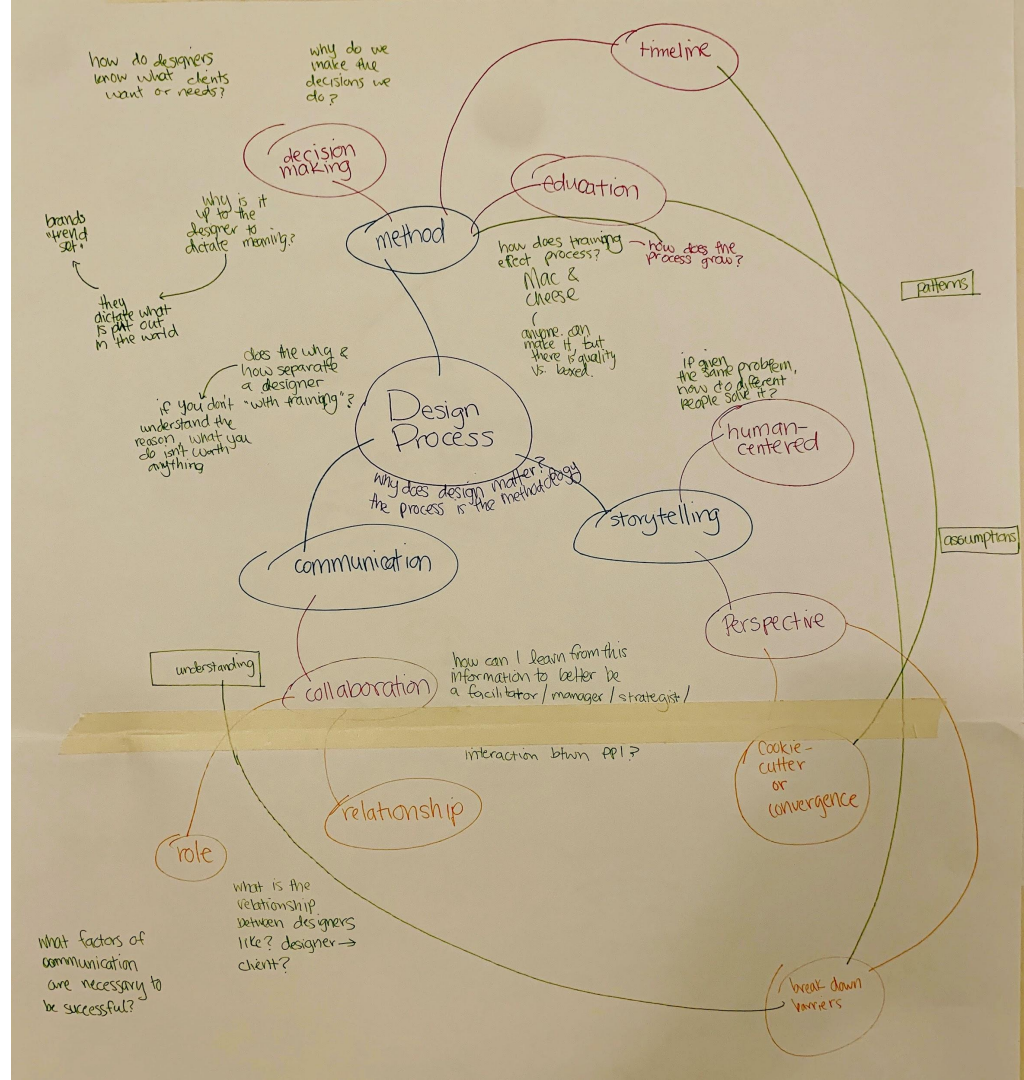 how do designers
know what clients
want or needs?
why do we
make the
decisions we
do?
timeline
decision
making
education
method
brands
"trend
set."
why is it
up to the
designer to
dictate meaning?
they
dictate what
is put out
in the world
how does training
effect process?
how does the
process grow?
Mac &
cheese
anyone can
make it, but
there is quality
vs. boxed.
patterns
does the why &
how separate
a designer
"with training"?
if you don't
understand the
reason, what you
do isn't worth
anything
Design
Process
why does design matter?
the process is the methodology
if given
the same problem,
how do different
people solve it?
human-
centered
storytelling
assumptions
communication
Perspective
understanding
collaboration
how can I learn from this
information to better be
a facilitator/manager/strategist/
interaction btwn ppl?
cookie-
cutter
or
convergence
relationship
role
what is the
relationship
between designers
like? designer→
client?
what factors of
communication
are necessary to
be successful?
break down
barriers